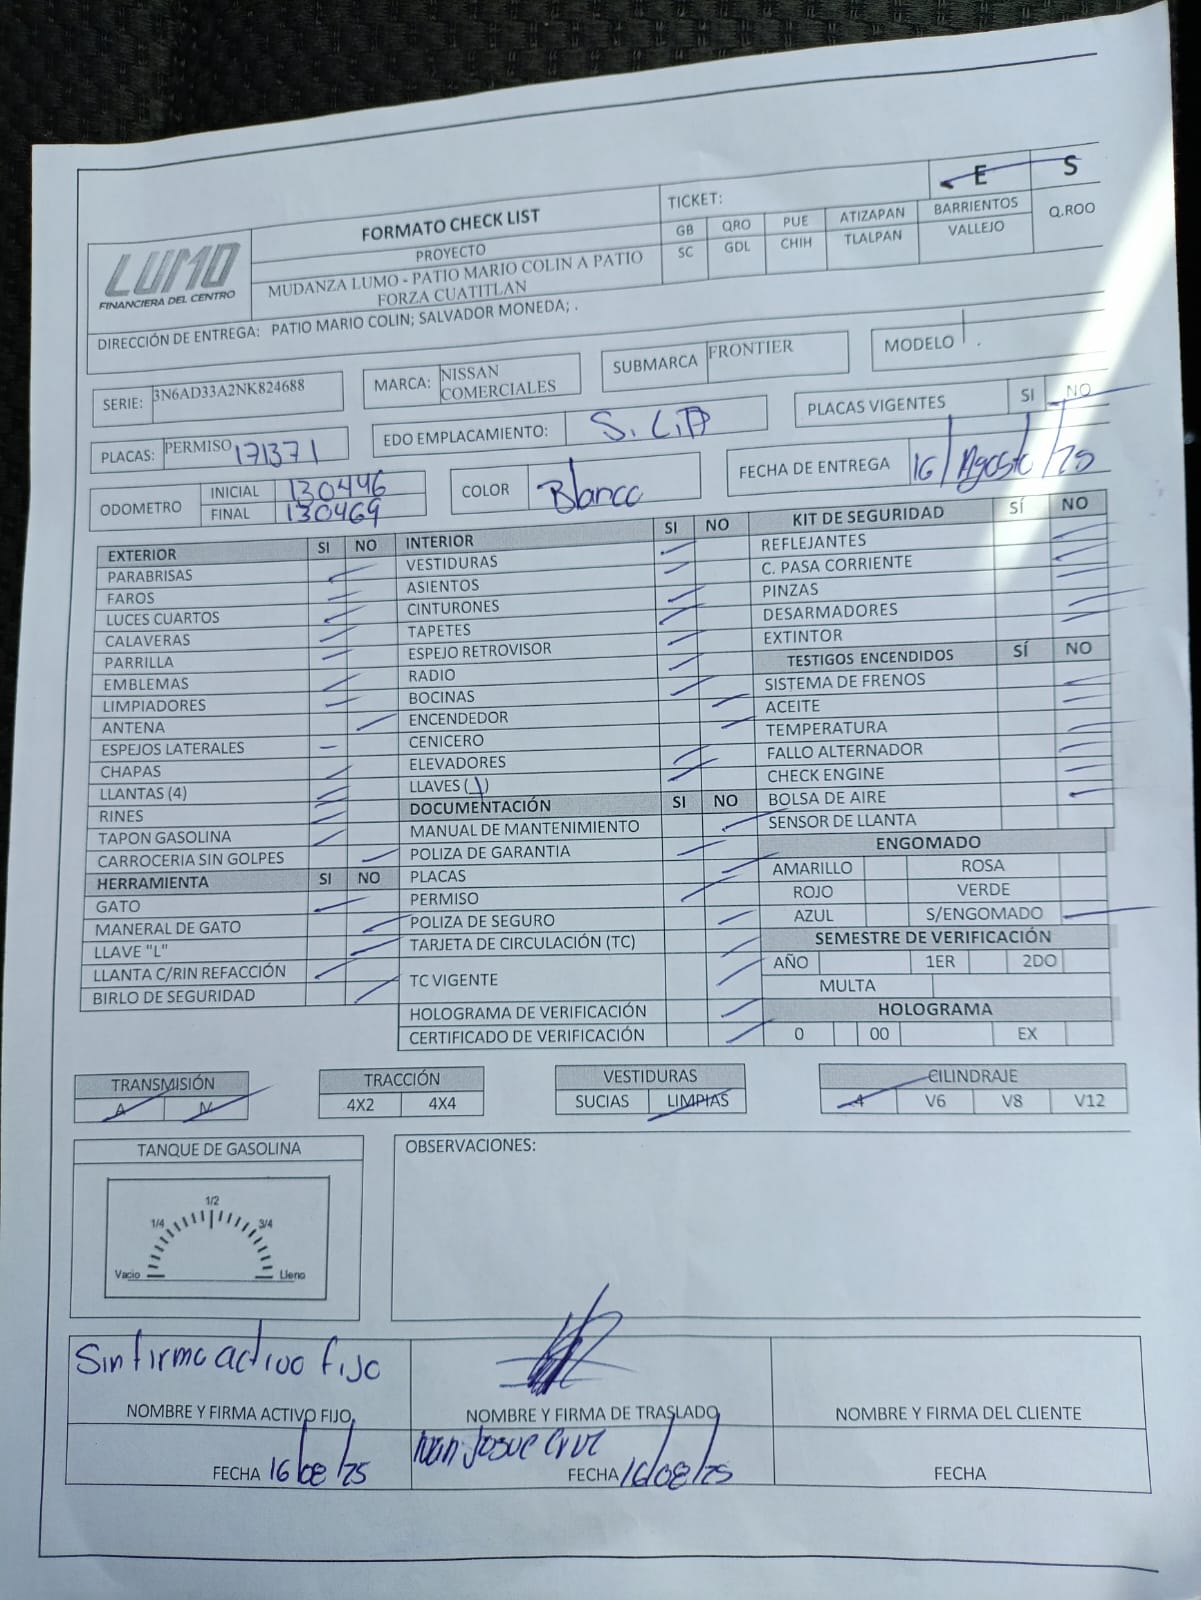 E S
TICKET:
FORMATO CHECK LIST
GB QRO PUE ATIZAPAN BARRIENTOS Q.ROO
PROYECTO
SC GDL CHIH TLALPAN VALLEJO
LUMO
FINANCIERA DEL CENTRO
MUDANZA LUMO - PATIO MARIO COLIN A PATIO
FORZA CUATITLAN
DIRECCIÓN DE ENTREGA: PATIO MARIO COLIN; SALVADOR MONEDA; .
SERIE: 3N6AD33A2NK824688
MARCA: NISSAN
COMERCIALES
SUBMARCA FRONTIER
MODELO
PLACAS: PERMISO 171371
EDO EMPLACAMIENTO: S. L.P
PLACAS VIGENTES SI NO
ODOMETRO INICIAL 130446
FINAL 130469
COLOR Blanco
FECHA DE ENTREGA 16/Agosto/25
EXTERIOR SI NO
PARABRISAS
FAROS
LUCES CUARTOS
CALAVERAS
PARRILLA
EMBLEMAS
LIMPIADORES
ANTENA
ESPEJOS LATERALES
CHAPAS
LLANTAS (4)
RINES
TAPON GASOLINA
CARROCERIA SIN GOLPES
HERRAMIENTA SI NO
GATO
MANERAL DE GATO
LLAVE "L"
LLANTA C/RIN REFACCIÓN
BIRLO DE SEGURIDAD
INTERIOR SI NO
VESTIDURAS
ASIENTOS
CINTURONES
TAPETES
ESPEJO RETROVISOR
RADIO
BOCINAS
ENCENDEDOR
CENICERO
ELEVADORES
LLAVES (1)
DOCUMENTACIÓN SI NO
MANUAL DE MANTENIMIENTO
POLIZA DE GARANTIA
PLACAS
PERMISO
POLIZA DE SEGURO
TARJETA DE CIRCULACIÓN (TC)
TC VIGENTE
HOLOGRAMA DE VERIFICACIÓN
CERTIFICADO DE VERIFICACIÓN
KIT DE SEGURIDAD SÍ NO
REFLEJANTES
C. PASA CORRIENTE
PINZAS
DESARMADORES
EXTINTOR
TESTIGOS ENCENDIDOS SÍ NO
SISTEMA DE FRENOS
ACEITE
TEMPERATURA
FALLO ALTERNADOR
CHECK ENGINE
BOLSA DE AIRE
SENSOR DE LLANTA
ENGOMADO
AMARILLO ROSA
ROJO VERDE
AZUL S/ENGOMADO
SEMESTRE DE VERIFICACIÓN
AÑO 1ER 2DO
MULTA
HOLOGRAMA
0 00 EX
TRANSMISIÓN
A M
TRACCIÓN
4X2 4X4
VESTIDURAS
SUCIAS LIMPIAS
CILINDRAJE
4 V6 V8 V12
TANQUE DE GASOLINA
1/2
1/4 3/4
Vacio Lleno
OBSERVACIONES:
Sin firma activo fijo
NOMBRE Y FIRMA ACTIVO FIJO
FECHA 16/08/25
NOMBRE Y FIRMA DE TRASLADO
Ivan Josue Cruz
FECHA 16/08/25
NOMBRE Y FIRMA DEL CLIENTE
FECHA